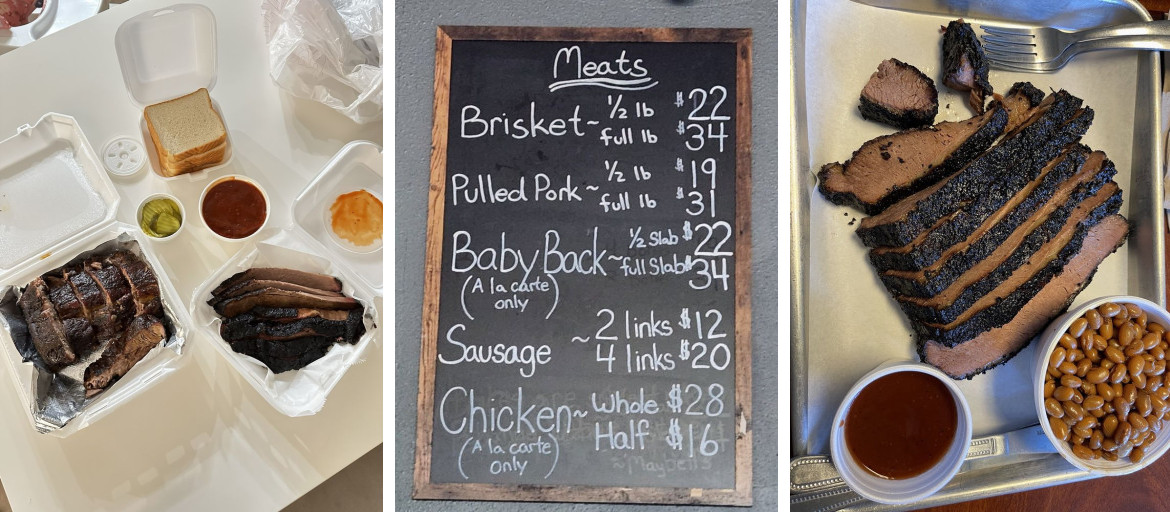 Meats
Brisket ~ ½ lb $22
full lb $34
Pulled Pork ~ ½ lb $19
full lb $31
Baby Back ~ ½ Slab $22
full Slab $34
(A la carte
only)
Sausage ~ 2 links $12
4 links $20
Chicken ~ Whole $28
Half $16
(A la carte
only)